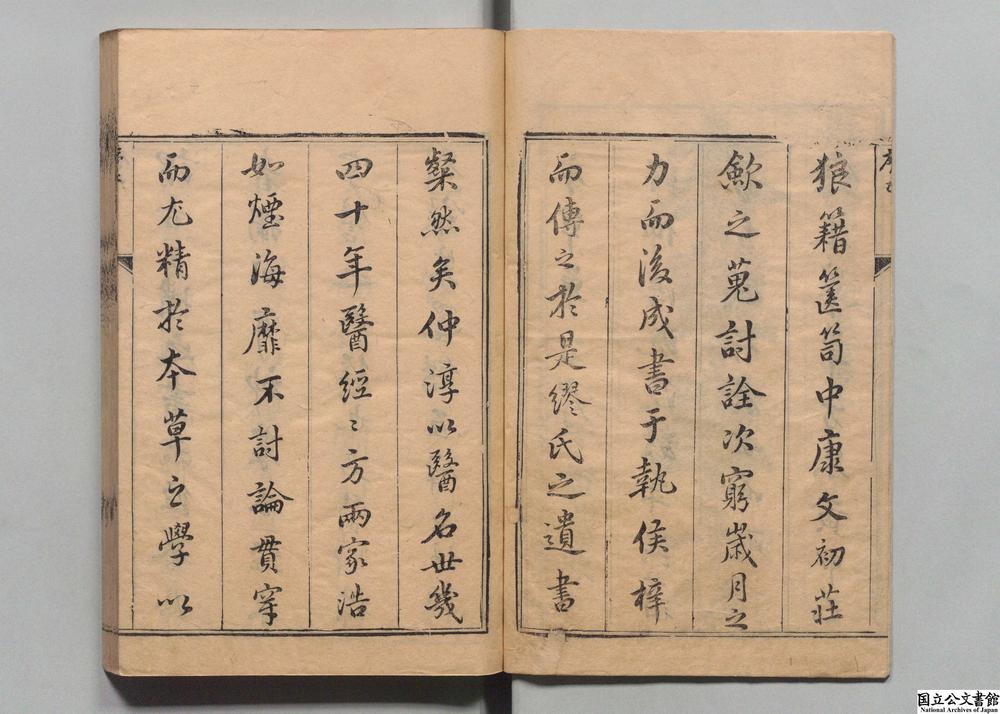 狼籍篋笥中康文初莊
歛之蒐討詮次窮歲月之
力而後成書于執侯梓
而傳之於是繆氏之遺書
粲然矣仲淳以醫名世幾
四十年醫經〻方兩家浩
如煙海靡不討論貫穿
而尤精於本草之學以
国立公文書館
National Archives of Japan